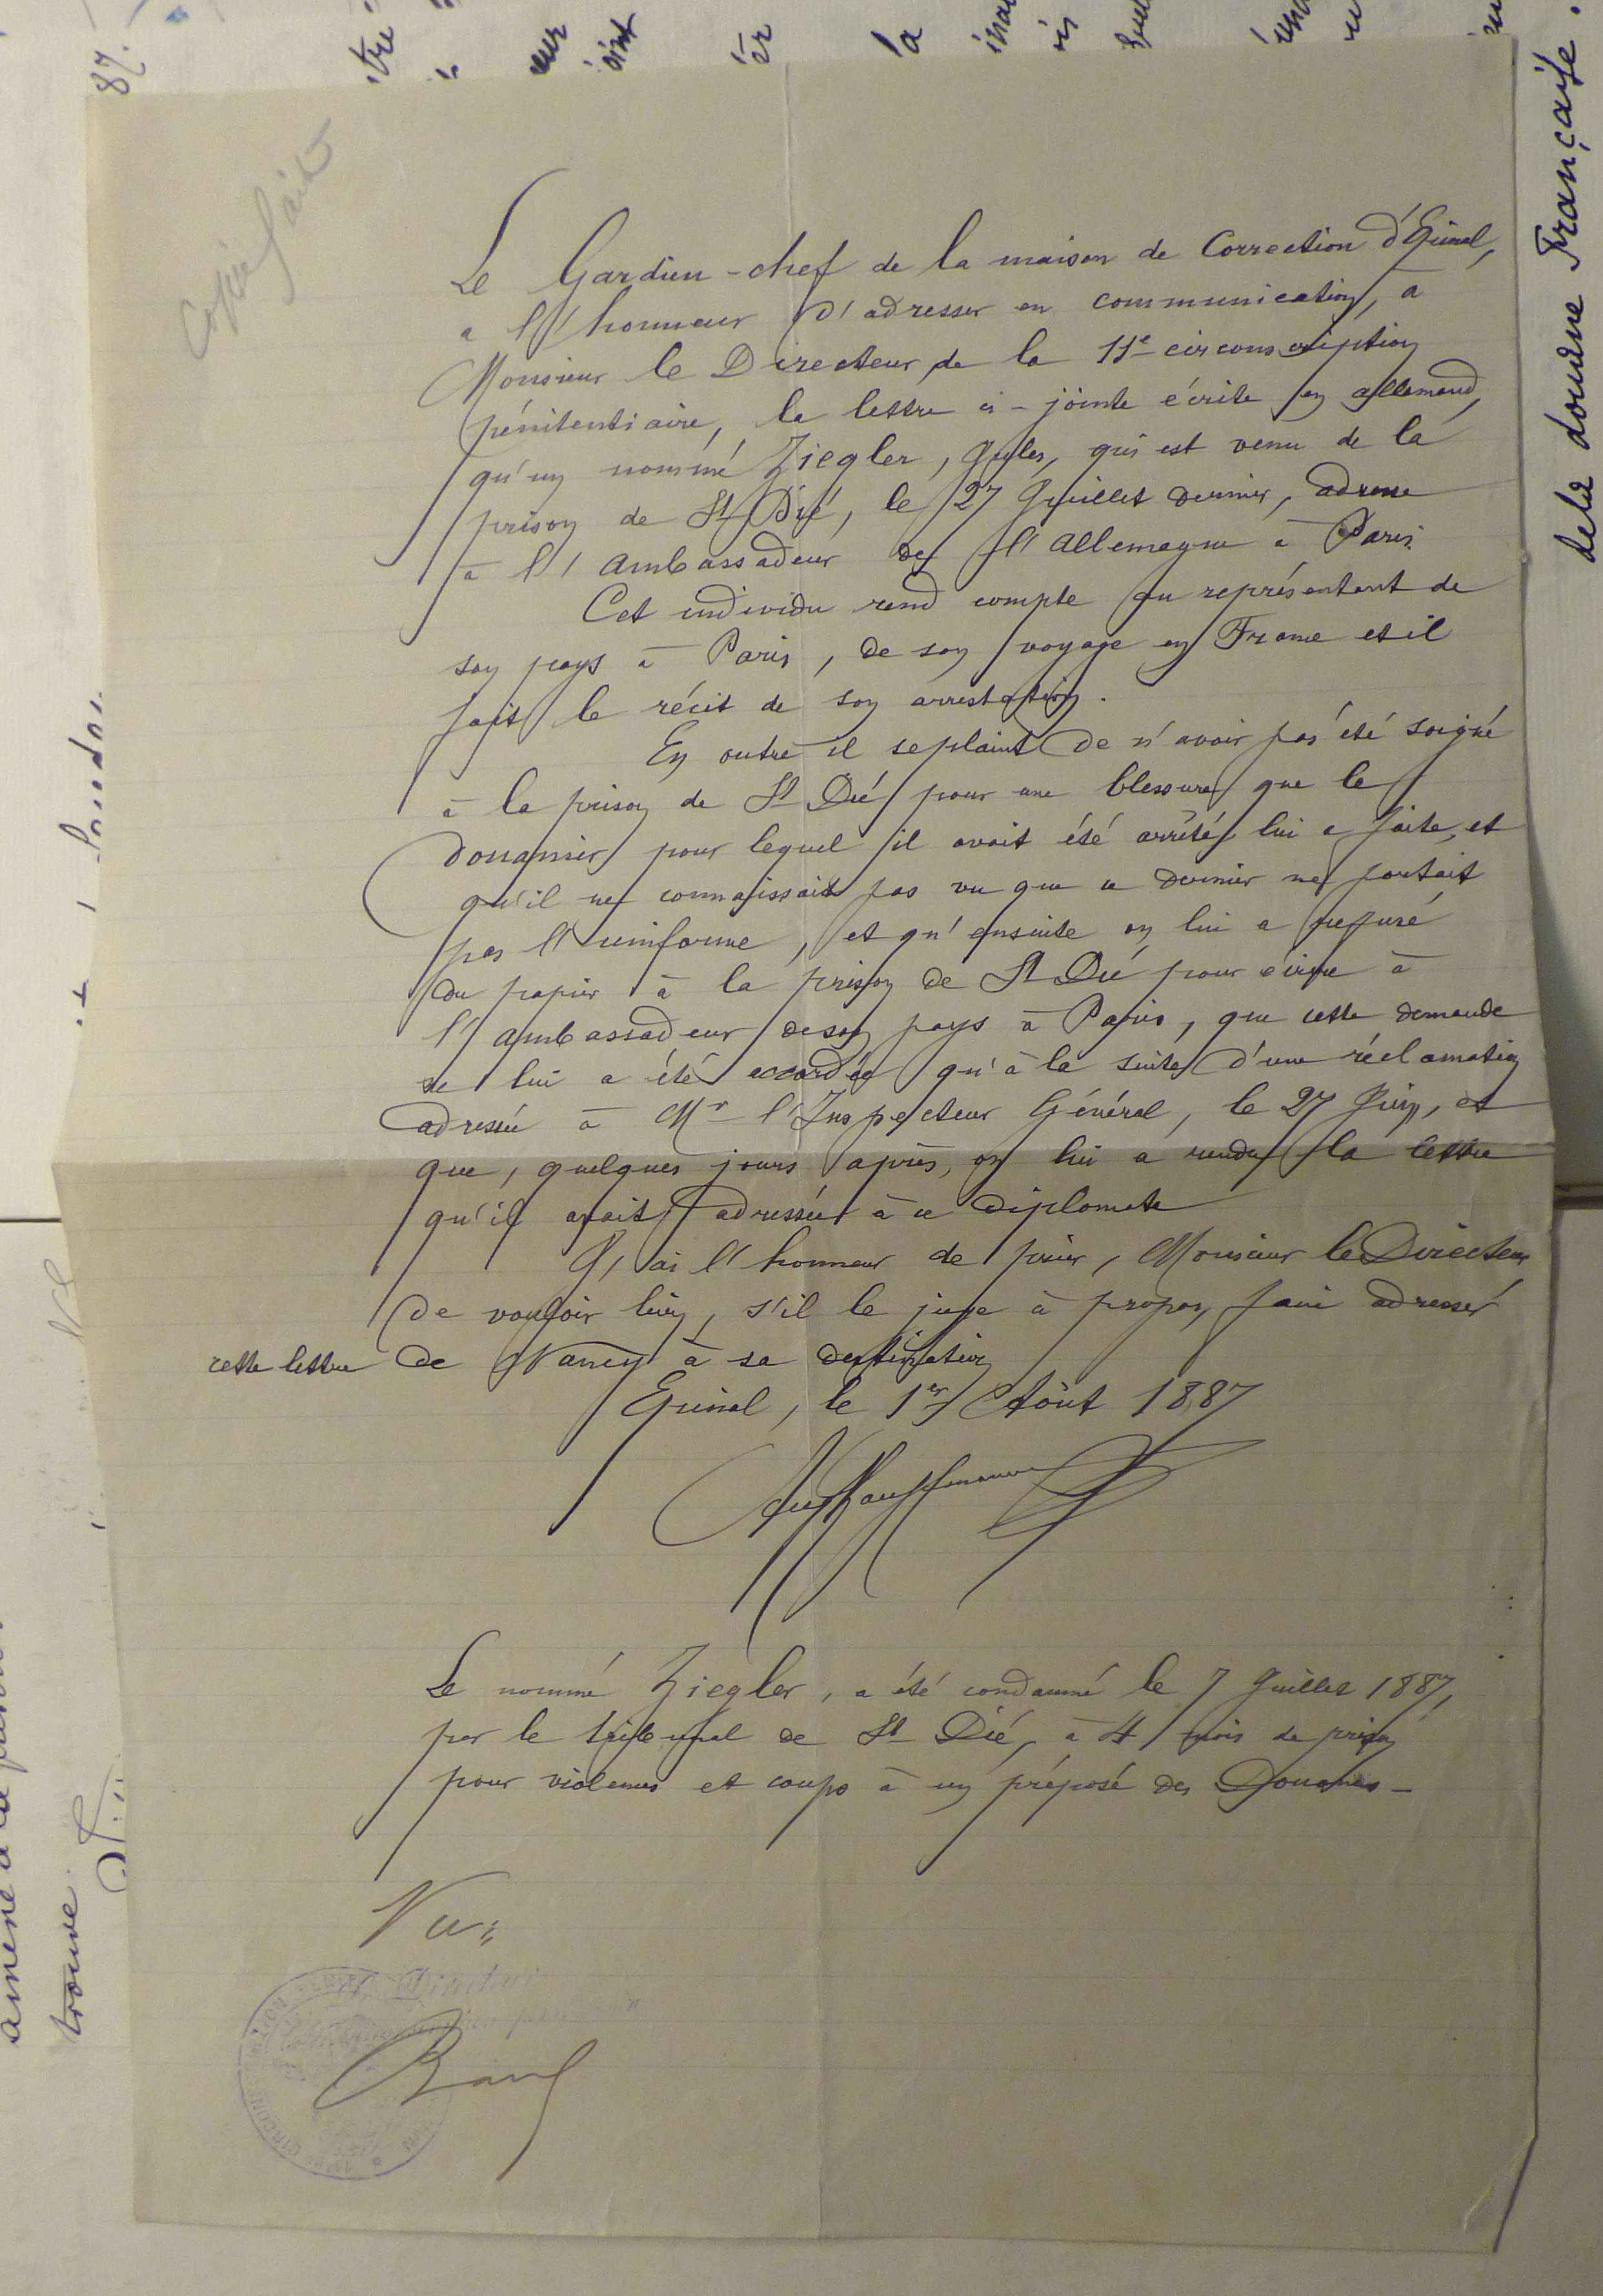 Copie faite
Le Gardien-chef de la maison de Correction d'Épinal,
a l'honneur d'adresser en communication, à
Monsieur le Directeur de la 11e circonscription
pénitentiaire, la lettre ci-jointe écrite en allemand,
qu'un nommé Ziegler, Jules, qui est venu de la
prison de St Dié, le 27 Juillet dernier, adresse
à l'ambassadeur de l'allemagne à Paris.
Cet individu rend compte au représentant de
son pays à Paris, de son voyage en France et il
fait le récit de son arrestation.
En outre il se plaint de n'avoir pas été soigné
à la prison de St Dié pour une blessure que le
douanier pour lequel il avait été arrêté, lui a faite, et
qu'il ne connaissait pas vu que ce dernier ne portait
pas l'uniforme, et qu'ensuite on lui a refusé
du papier à la prison de St Dié pour écrire à
l'ambassadeur de son pays à Paris, que cette demande
ne lui a été accordée qu'à la suite d'une réclamation
adressée à Mr l'Inspecteur Général, le 27 Juin, et
que, quelques jours après, on lui a rendu la lettre
qu'il avait adressée à ce diplomate
J'ai l'honneur de prier, Monsieur le Directeur
de vouloir bien, s'il le juge à propos, faire adresser
cette lettre de Nancy à sa destination
Epinal, le 1er Août 1887
Kauffmann
Le nommé Ziegler, a été condamné le 7 Juillet 1887,
par le tribunal de St Dié, à 4 mois de prison
pour violences et coups à un préposé des Douanes -
Vu:
Le Directeur
87.
dela douane Française.
trouve